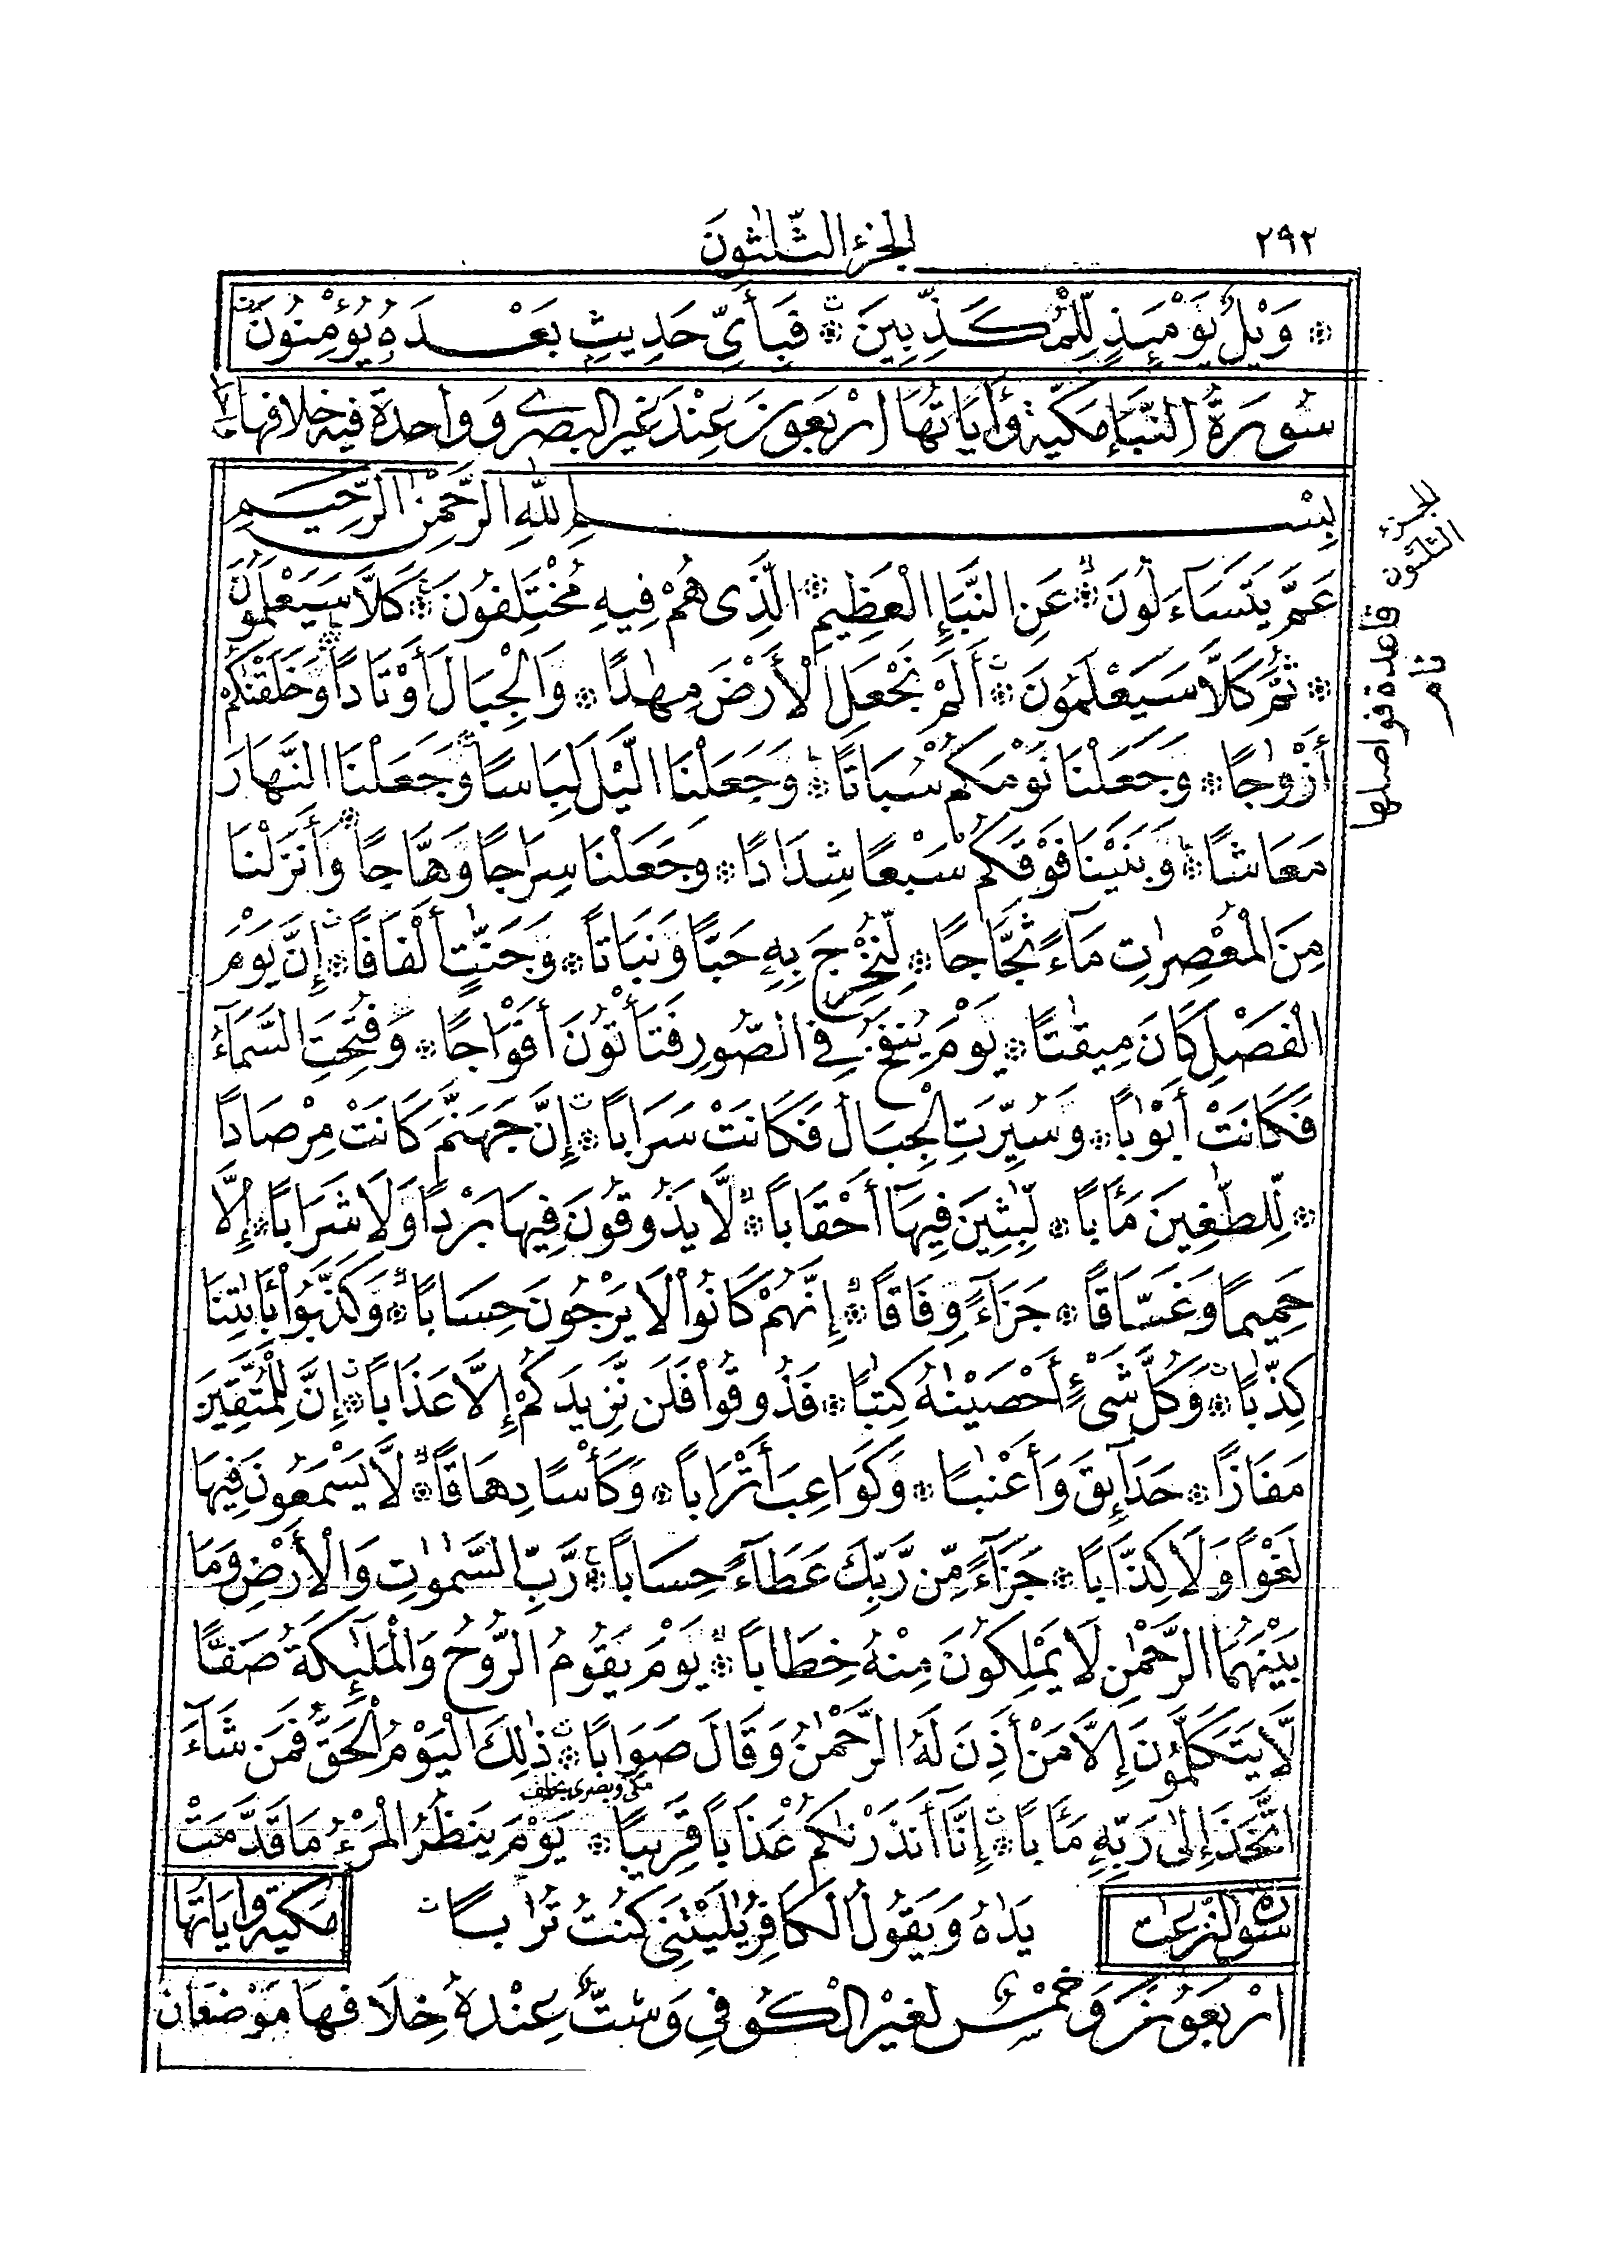 ٢٩٢
الجزء الثلثون
۞ وَيْلٌ يَوْمَئِذٍ لِّلْمُكَذِّبِينَ ۞ فَبِأَيِّ حَدِيثٍ بَعْدَهُ يُؤْمِنُونَ
سورة النبإ مكية وأياتها اربعون عند غير البصرى وواحدة فيه خلافها
بِسْمِ اللَّهِ الرَّحْمٰنِ الرَّحِيمِ
عَمَّ يَتَسَآءَلُونَ ۞ عَنِ النَّبَإِ الْعَظِيمِ ۞ الَّذِى هُمْ فِيهِ مُخْتَلِفُونَ ۞ كَلَّا سَيَعْلَمُونَ
۞ ثُمَّ كَلَّا سَيَعْلَمُونَ ۞ أَلَمْ نَجْعَلِ الْأَرْضَ مِهٰدًا ۞ وَالْجِبَالَ أَوْتَادًا ۞ وَخَلَقْنٰكُمْ
أَزْوٰجًا ۞ وَجَعَلْنَا نَوْمَكُمْ سُبَاتًا ۞ وَجَعَلْنَا الَّيْلَ لِبَاسًا ۞ وَجَعَلْنَا النَّهَارَ
مَعَاشًا ۞ وَبَنَيْنَا فَوْقَكُمْ سَبْعًا شِدَادًا ۞ وَجَعَلْنَا سِرَاجًا وَهَّاجًا ۞ وَأَنزَلْنَا
مِنَ الْمُعْصِرٰتِ مَآءً ثَجَّاجًا ۞ لِّنُخْرِجَ بِهِ حَبًّا وَنَبَاتًا ۞ وَجَنّٰتٍ أَلْفَافًا ۞ إِنَّ يَوْمَ
الْفَصْلِ كَانَ مِيقٰتًا ۞ يَوْمَ يُنفَخُ فِي الصُّورِ فَتَأْتُونَ أَفْوَاجًا ۞ وَفُتِّحَتِ السَّمَآءُ
فَكَانَتْ أَبْوٰبًا ۞ وَسُيِّرَتِ الْجِبَالُ فَكَانَتْ سَرَابًا ۞ إِنَّ جَهَنَّمَ كَانَتْ مِرْصَادًا
۞ لِّلطّٰغِينَ مَـَٔابًا ۞ لّٰبِثِينَ فِيهَآ أَحْقَابًا ۞ لَّا يَذُوقُونَ فِيهَا بَرْدًا وَلَا شَرَابًا ۞ إِلَّا
حَمِيمًا وَغَسَّاقًا ۞ جَزَآءً وِفَاقًا ۞ إِنَّهُمْ كَانُوا لَا يَرْجُونَ حِسَابًا ۞ وَكَذَّبُوا بِـَٔايٰتِنَا
كِذَّابًا ۞ وَكُلَّ شَىْءٍ أَحْصَيْنٰهُ كِتٰبًا ۞ فَذُوقُوا فَلَن نَّزِيدَكُمْ إِلَّا عَذَابًا ۞ إِنَّ لِلْمُتَّقِينَ
مَفَازًا ۞ حَدَآئِقَ وَأَعْنٰبًا ۞ وَكَوَاعِبَ أَتْرَابًا ۞ وَكَأْسًا دِهَاقًا ۞ لَّا يَسْمَعُونَ فِيهَا
لَغْوًا وَلَا كِذَّابًا ۞ جَزَآءً مِّن رَّبِّكَ عَطَآءً حِسَابًا ۞ رَّبُّ السَّمٰوٰتِ وَالْأَرْضِ وَمَا
بَيْنَهُمَا الرَّحْمٰنُ لَا يَمْلِكُونَ مِنْهُ خِطَابًا ۞ يَوْمَ يَقُومُ الرُّوحُ وَالْمَلٰٓئِكَةُ صَفًّا
لَّا يَتَكَلَّمُونَ إِلَّا مَنْ أَذِنَ لَهُ الرَّحْمٰنُ وَقَالَ صَوَابًا ۞ ذٰلِكَ الْيَوْمُ الْحَقُّ فَمَن شَآءَ
مكى وبصرى بخلف
اتَّخَذَ إِلٰى رَبِّهِ مَـَٔابًا ۞ إِنَّآ أَنذَرْنٰكُمْ عَذَابًا قَرِيبًا ۞ يَوْمَ يَنظُرُ الْمَرْءُ مَا قَدَّمَتْ
يَدَاهُ وَيَقُولُ الْكَافِرُ يٰلَيْتَنِى كُنتُ تُرَابًا
سورة النزعت
مكية وأياتها
اربعون وخمس لغير الكوفي وست عنده خلافها موضعان
للجزء
الثلثون
قاعدة فواصلها
ثام